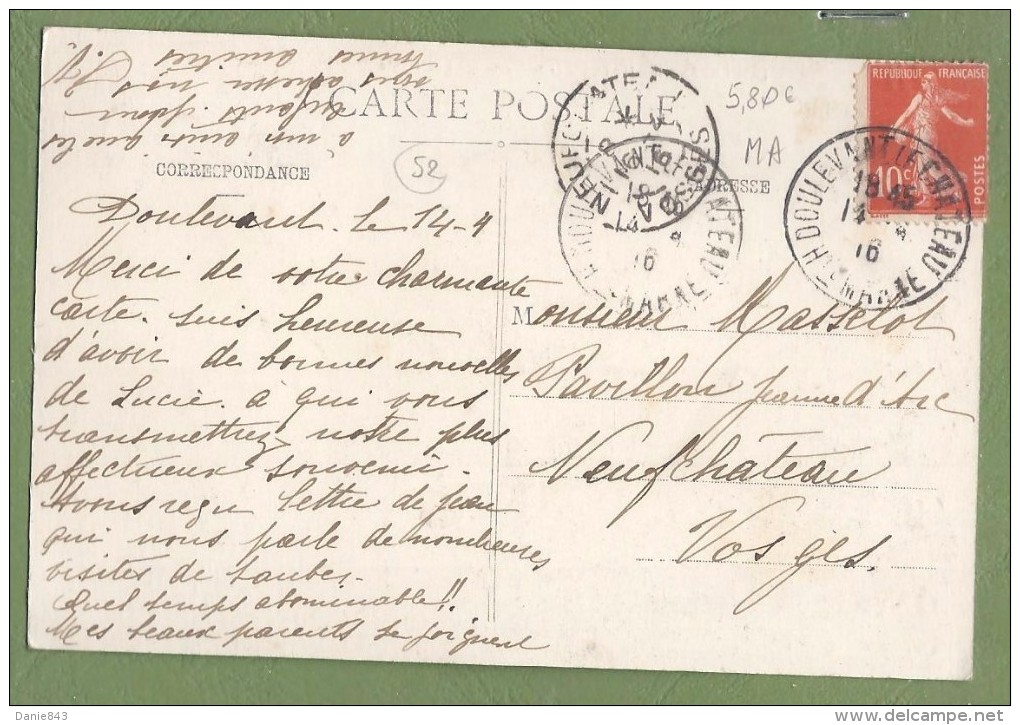 CARTE POSTALE
CORRESPONDANCE
ADRESSE
52
5,80€
MA
REPUBLIQUE FRANÇAISE
10c
POSTES
DOULEVANT-LE-CHATEAU
18 45
14 - 4
16
HTE MARNE
NEUFCHATEAU
VOSGES
Doulevant, le 14-4
Merci de votre charmante
carte. suis heureuse
d'avoir de bonnes nouvelles
de Lucie. à qui vous
transmettrez notre plus
affectueux souvenir.
Avons reçu lettre de Jean
qui nous parle de nombreuses
visites de
Quel temps abominable!!
Mes beaux parents se joignent
à moi
enfants pour
vous adresser nos
amitiés
Monsieur Masselot
Pavillon Jeanne d'Arc
Neufchâteau
Vosges.
Danie843
www.delcampe.net